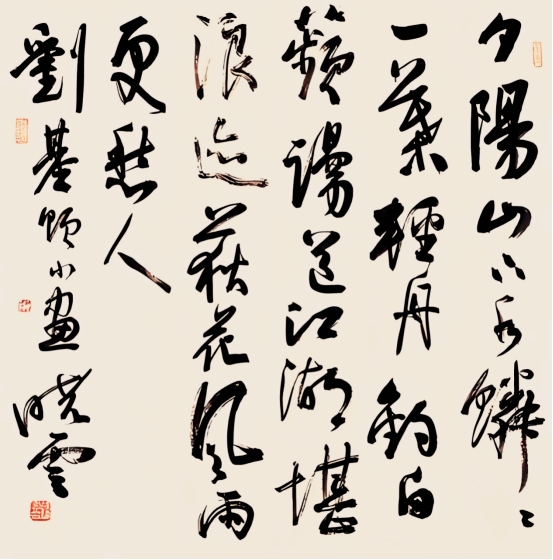 夕陽山下水鱗〻
一葉輕舟釣白
蘋謾道江湖堪
浪迹荻花風雨
更愁人
劉基題小畫曉雲